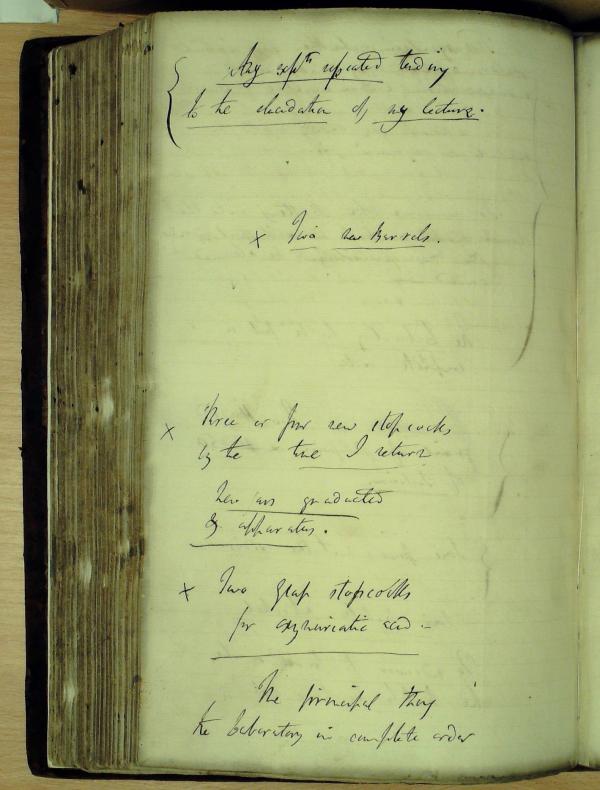 Any expts repeated tending
to the elucidation of my lecture.
× Two new Barrels.
× three or four new stopcocks
by the time I return
New graduated
apparatus.
× Two glass stopcocks
for oxymuriatic acid –
The principal thing
the laboratory in complete order